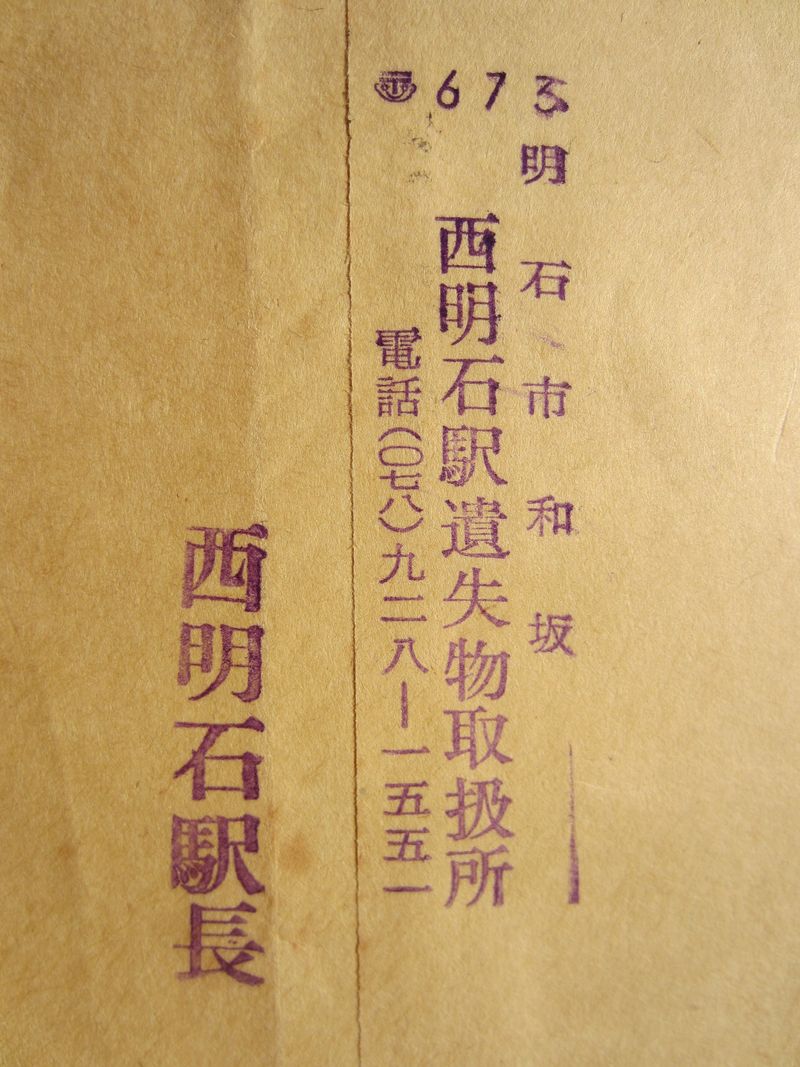 〠673
明石市和坂
西明石駅遺失物取扱所
電話(〇七八)九二八ー一五五一
西明石駅長